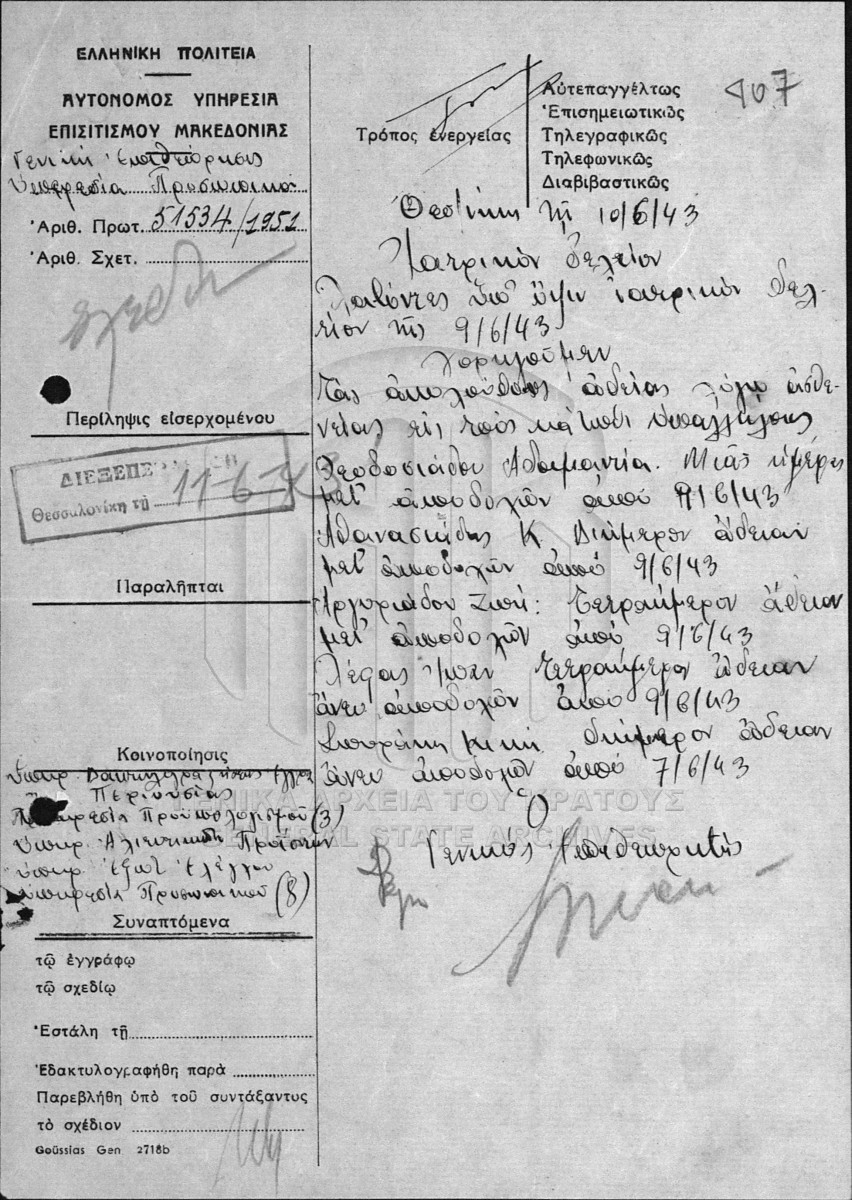 ΕΛΛΗΝΙΚΗ ΠΟΛΙΤΕΙΑ
ΑΥΤΟΝΟΜΟΣ ΥΠΗΡΕΣΙΑ
ΕΠΙΣΙΤΙΣΜΟΥ ΜΑΚΕΔΟΝΙΑΣ
Γενική Ἐπιθεώρησις
Ὑπηρεσία Προσωπικοῦ
Ἀριθ. Πρωτ. 51534/1951
Ἀριθ. Σχετ.
Περίληψις εἰσερχομένου
ΔΙΕΞΕΠΕ
Θεσσαλονίκη τῇ 11-6-
Παραλῆπται
Κοινοποίησις
Περιουσίας
Ὑπηρεσία Προϋπολογισμοῦ (3)
Ὑπηρ. Ἀλιευτικῶν Προϊόντων
Ὑπηρ. Ἐξωτ. Ἐλέγχου
Ὑπηρεσία Προσωπικοῦ (8)
Συναπτόμενα
τῷ ἐγγράφῳ
τῷ σχεδίῳ
Ἐστάλη τῇ
Ἐδακτυλογραφήθη παρὰ
Παρεβλήθη ὑπὸ τοῦ συντάξαντος
τὸ σχέδιον
Goüssias Gen 2718b
407
Τρόπος ἐνεργείας
Αὐτεπαγγέλτως
Ἐπισημειωτικῶς
Τηλεγραφικῶς
Τηλεφωνικῶς
Διαβιβαστικῶς
Θεσ/νίκη τῇ 10/6/43
Ἰατρικὸν δελτίον
Λαβόντες ὑπ' ὄψιν ἰατρικὸν δελ-
τίον τῆς 9/6/43
Χορηγοῦμεν
Τὰς ἀκολούθους ἀδείας λόγῳ ἀσθε-
νείας εἰς τοὺς κάτωθι ὑπαλλήλους
Θεοδοσιάδου Ἀδαμαντία. Μιᾶς ἡμέρας
μετ' ἀποδοχῶν ἀπὸ 9/6/43
Ἀθανασιάδης Κ. Διήμερον ἄδειαν
μετ' ἀποδοχῶν ἀπὸ 9/6/43
Ἀργυριάδου Ζωή: Τετραήμερον ἄδειαν
μετ' ἀποδοχῶν ἀπὸ 9/6/43
Λέφας τετραήμερον ἄδειαν
ἄνευ ἀποδοχῶν ἀπὸ 9/6/43
διήμερον ἄδειαν
ἄνευ ἀποδοχῶν ἀπὸ 7/6/43
Ὁ
Γενικὸς Ἐπιθεωρητὴς
ΓΕΝΙΚΑ ΑΡΧΕΙΑ ΤΟΥ ΚΡΑΤΟΥΣ
GENERAL STATE ARCHIVES